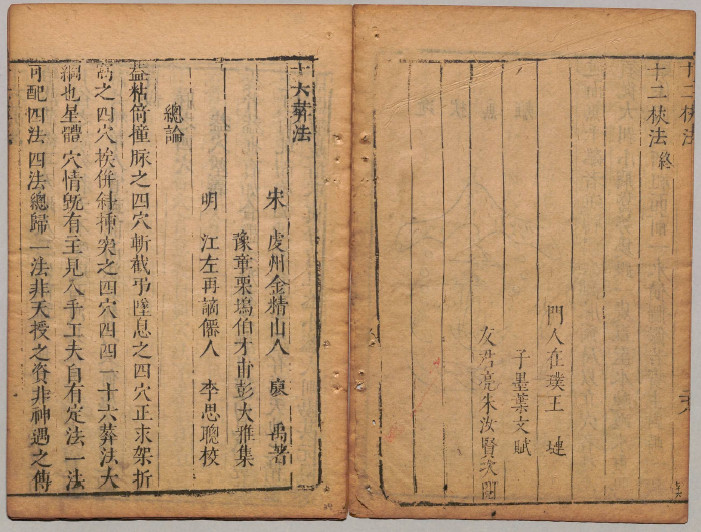 十二杖法
十二杖法終
門人在璞王 璉
子墨葉文賦
友君亮朱汝賢次
十六葬法
宋 虔州金精山人 廖 禹著
豫章栗塢伯才甫彭大雅集
明 江左再謫僊人 李思聰校
總論
蓋粘倚撞脉之四穴斬截弔墜息之四穴正求架折
窩之四穴挨併斜揷突之四穴四四一十六葬法大
綱也星體穴情旣有主見入手工夫自有定法一法
可配四法四法總歸一法非天授之資非神遇之傳